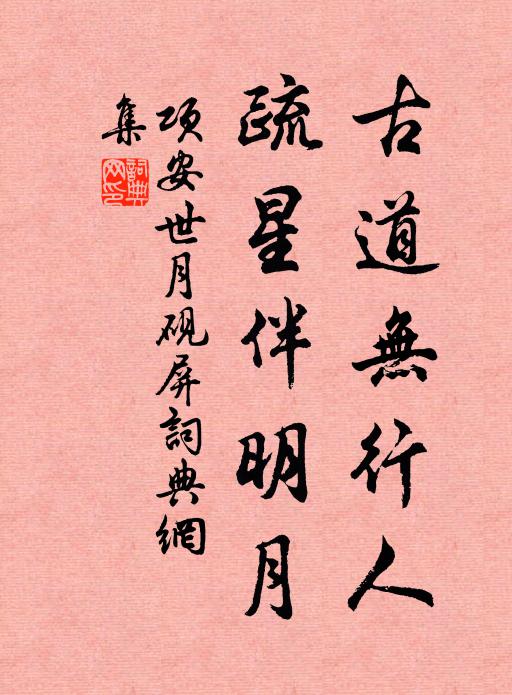 古道無行人
疏星伴明月
項安世月硯屏詞典網
集
詞典網印